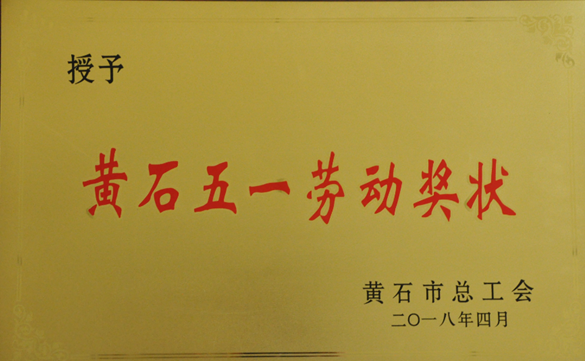 授予
黄石五一劳动奖状
黄石市总工会
二〇一八年四月